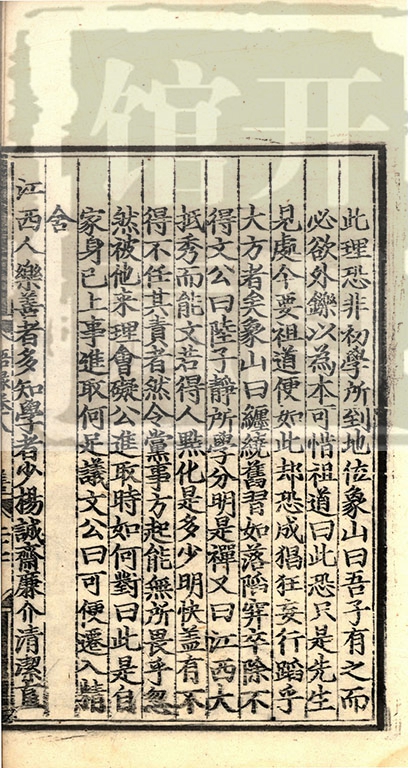 此理恐非初學所到地位象山曰吾子有之而
必欲外鑠以為本可惜祖道曰此恐只是先生
見處今要祖道便如此却恐成猖狂妄行蹈乎
大方者矣象山曰纏繞舊習如落陷穽卒除不
得文公曰陸子靜所學分明是禪又曰江西大
抵秀而能文若得人點化是多少明快盖有不
得不任其責者然今黨事方起能無所畏乎忽
然被他来理會礙公進取時如何對曰此是自
家身已上事進取何足議文公曰可便遷入精
舍
江西人樂善者多知學者少楊誠齋廉介清潔直
開館